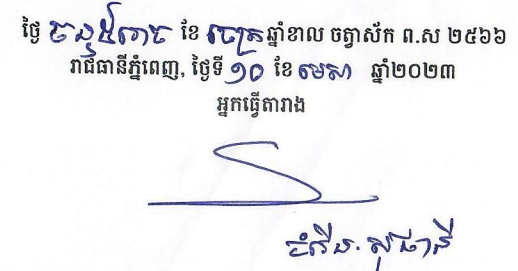 ថ្ងៃ ចន្ទ ៥រោច ខែ ចេត្រ ឆ្នាំខាល ចត្វាស័ក ព.ស ២៥៦៦
រាជធានីភ្នំពេញ, ថ្ងៃទី ១០ ខែ មេសា ឆ្នាំ២០២៣
អ្នកធ្វើតារាង
ចំរើន សុផានី